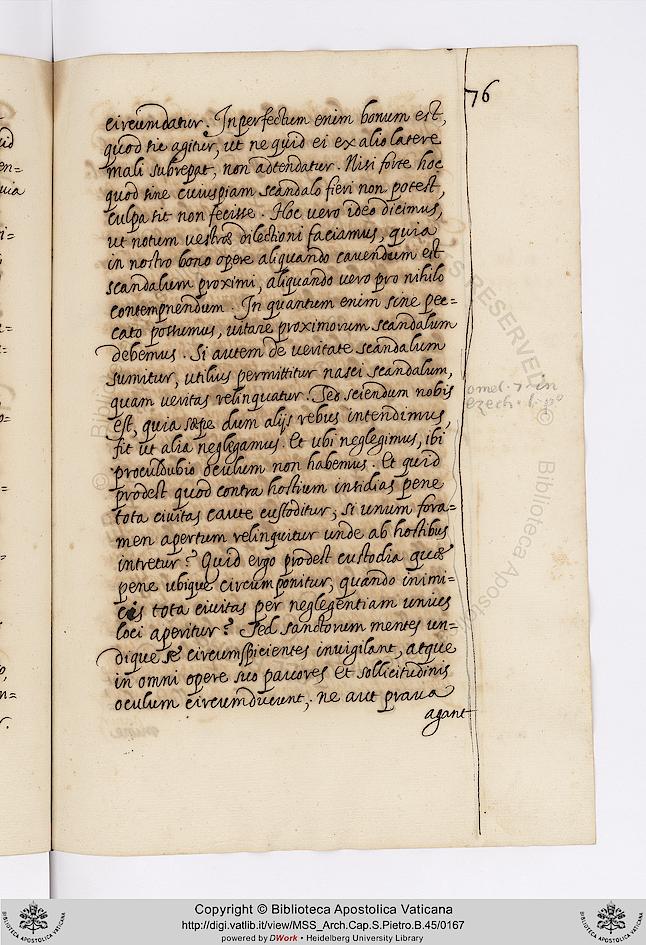 76
circumdatur. Inperfectum enim bonum est,
quod sic agitur, ut ne quid ei ex alio latere
mali subrepat, non adtendatur. Nisi forte hoc
quod sine cuiuspiam scandalo fieri non potest,
culpa sit non fecisse. Hoc vero ideo dicimus,
ut notum vestrae dilectioni faciamus, quia
in nostro bono opere aliquando cavendum est
scandalum proximi, aliquando vero pro nihilo
contempnendum. In quantum enim sine pec=
cato possumus, vitare proximorum scandalum
debemus. Si autem de veritate scandalum
sumitur, utilius permittitur nasci scandalum,
quam veritas relinquatur. Sed sciendum nobis
est, quia saepe dum alijs rebus intendimus,
fit ut alia neglegamus. Et ubi neglegimus, ibi
proculdubio oculum non habemus. Et quid
prodest quod contra hostium insidias pene
tota civitas caute custoditur, si unum fora=
men apertum relinquitur unde ab hostibus
intretur? Quid ergo prodest custodia quae
pene ubique circumponitur, quando inimi=
cis tota civitas per neglegentiam unius
loci aperitur? Sed sanctorum mentes un=
dique se circumspicientes invigilant, atque
in omni opere suo pavores et sollicitudinis
oculum circumducunt, ne aut prava
agant
omel. 7. in
ezech. l. pº
Copyright © Biblioteca Apostolica Vaticana
http://digi.vatlib.it/view/MSS_Arch.Cap.S.Pietro.B.45/0167
powered by DWork • Heidelberg University Library